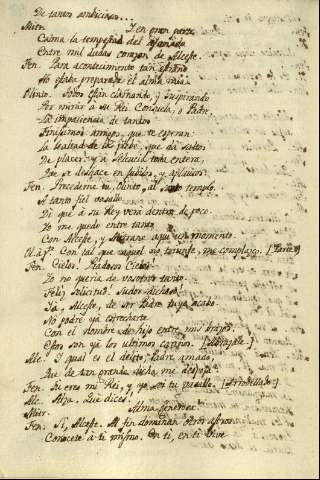 De tantos ambiciosos...
Mitr. Y en gran parte
Calma la tempestad del afanado
Entre mil dudas corazon de Alceste.
Fen. Para acontecimiento tan extraño
No estaba preparada el alma mia.
Olinto. Todos están clamando, y suspirando
Por mirar à su Rei. Consuela, o Padre,
La impaciencia de tantos
Finisimos amigos, que te esperan:
La lealtad de la plebe, que dà saltos
De placer: y a Seleucia toda entera,
Que se deshace en jubilos, y aplausos.
Fen. Precedeme tu, Olinto, al templo.
A tanto fiel vasallo
Di que à su Rey verà dentro de poco.
Yo me quedo entre tanto
Con Alceste, y Mitrane aqui un momento.
Ol. Con tal que aquel se complazco.
Fen. Cielos! Piadosos Cielos!
Yo no queria de vosotros tanto.
Feliz solicitud! Sudor dichoso!
Ya, Alceste, de ser Padre tuyo acabo.
No podrè ya estrecharte
Con el nombre de hijo entre mis brazos.
Estos son ya los ultimos cariños. [Abrazale.]
Alc. Y qual es el delito, Padre amado,
Que de tan grande dicha me despoja?
Fen. Tu eres mi Rei, y yo soi tu vasallo. [Arrodillase.]
Alc. Alza. Què dices!
Mitr. Alma generosa!
Fen. Sì, Alceste. Al fin dominan otros astros.
Conocete à ti mismo. En ti, en ti vive